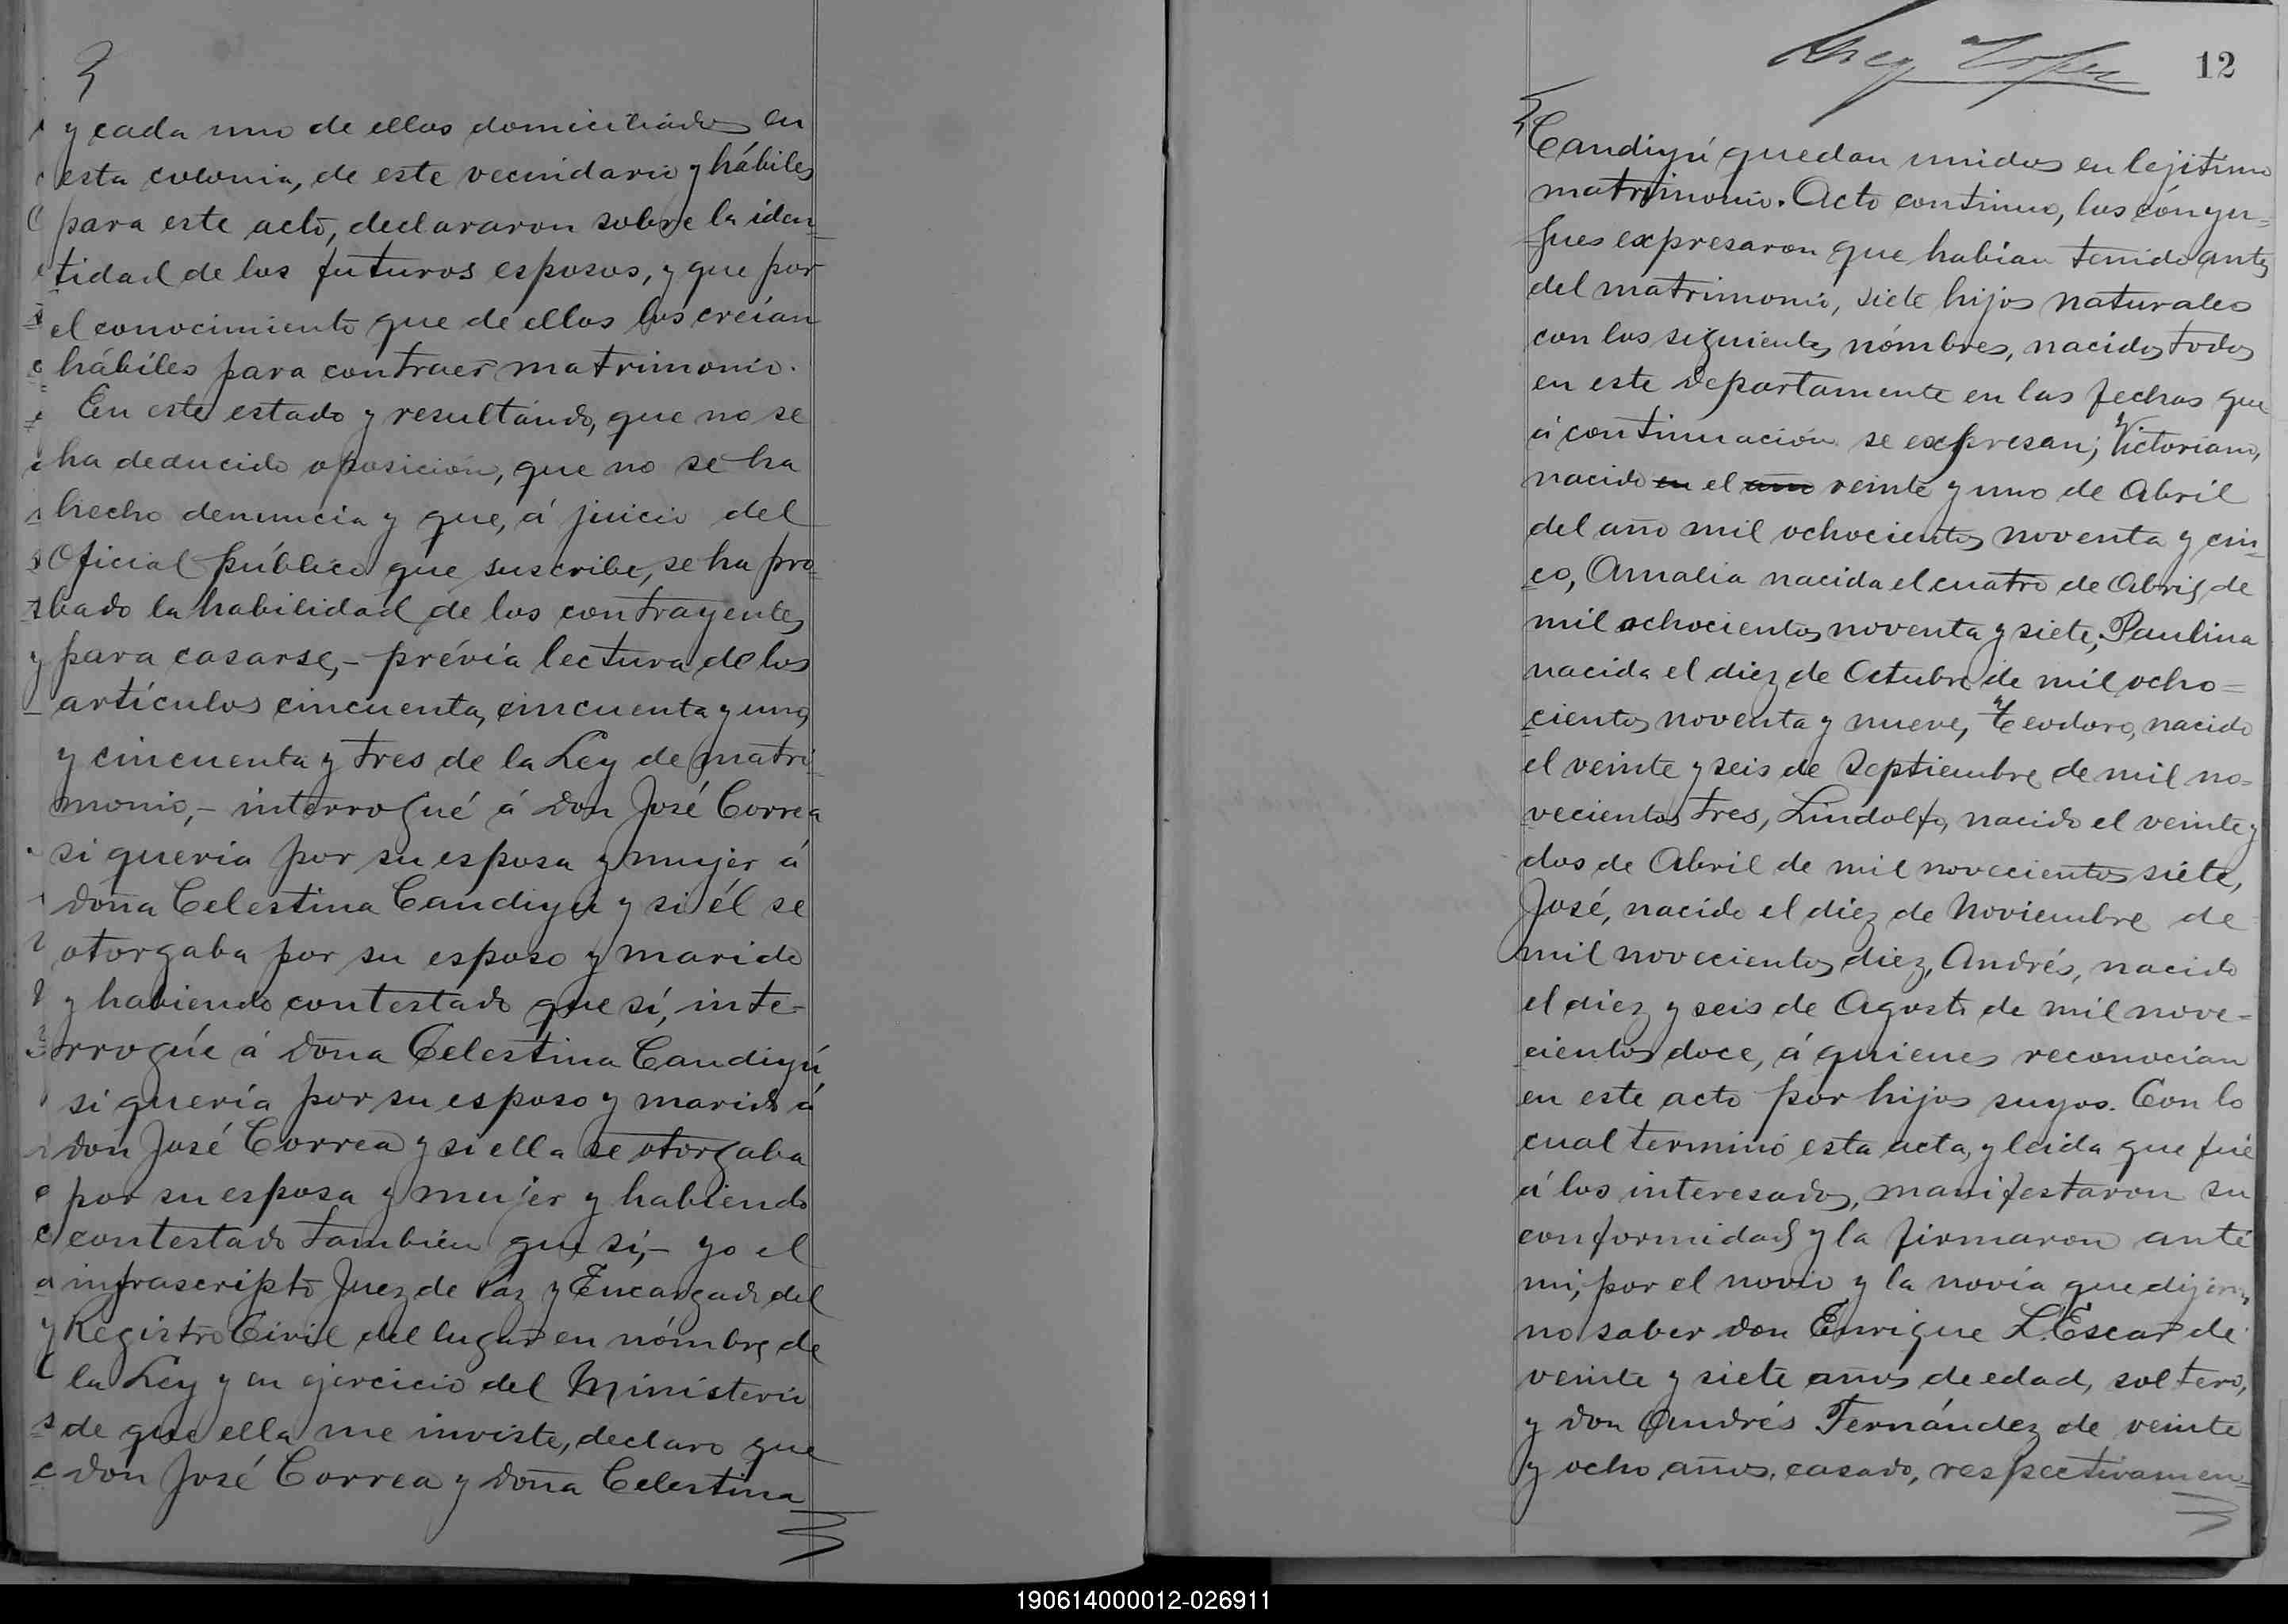 y cada uno de ellos domiciliados en
esta colonia, de este vecindario y hábiles
para este acto, declararon sobre la iden-
tidad de los futuros esposos, y que por
el conocimiento que de ellos los creían
hábiles para contraer matrimonio.
En este estado y resultando, que no se
ha deducido oposición, que no se ha
hecho denuncia y que, á juicio del
Oficial público que suscribe, se ha pro-
bado la habilidad de los contrayentes
para casarse,- prévia lectura de los
artículos cincuenta, cincuenta y uno,
y cincuenta y tres de la Ley de matri-
monio,- interrogué á don José Correa
si queria por su esposa y mujer á
doña Celestina Candiyú y si él se
otorgaba por su esposo y marido
y habiendo contestado que sí, inte-
rrogúe á doña Celestina Candiyú
si quería por su esposo y marido á
don José Correa y si ella se otorgaba
por su esposa y mujer y habiendo
contestado también que si,- yo el
infrascripto Juez de Paz y Encargado del
Registro Civil del lugar en nómbre de
la Ley y en ejercicio del Ministerio
de que ella me inviste, declaro que
don José Correa y doña Celestina
12
Candiyú quedan unidos en lejitimo
matrimonio. Acto continuo, los cónyu-
gues expresaron que habian tenido antes
del matrimonio, siete hijos naturales
con los siguientes nómbres, nacidos todos
en este departamento en las fechas que
á continuación se expresan; Victoriano,
nacido en el año veinte y uno de Abril
del año mil ochocientos noventa y cin-
co, Amalia nacida el cuatro de Abril de
mil ochocientos noventa y siete, Paulina
nacida el diez de Octubre de mil ocho-
cientos noventa y nueve, Teodoro, nacido
el veinte y seis de Septiembre de mil no-
vecientos tres, Lindolfo, nacido el veinte y
dos de Abril de mil novecientos siete,
José, nacido el diez de Noviembre de
mil novecientos diez, Andrés, nacido
el diez y seis de Agosto de mil nove-
cientos doce, á quienes reconocian
en este acto por hijos suyos. Con lo
cual terminó esta acta, y leida que fué
á los interesados, manifestaron su
conformidad y la firmaron ante
mi, por el novio y la novia que dijeron
no saber don Enrique L. Escar de
veinte y siete años de edad, soltero,
y don Andrés Fernández de veinte
y ocho años, casado, respectivamen-
190614000012-026911